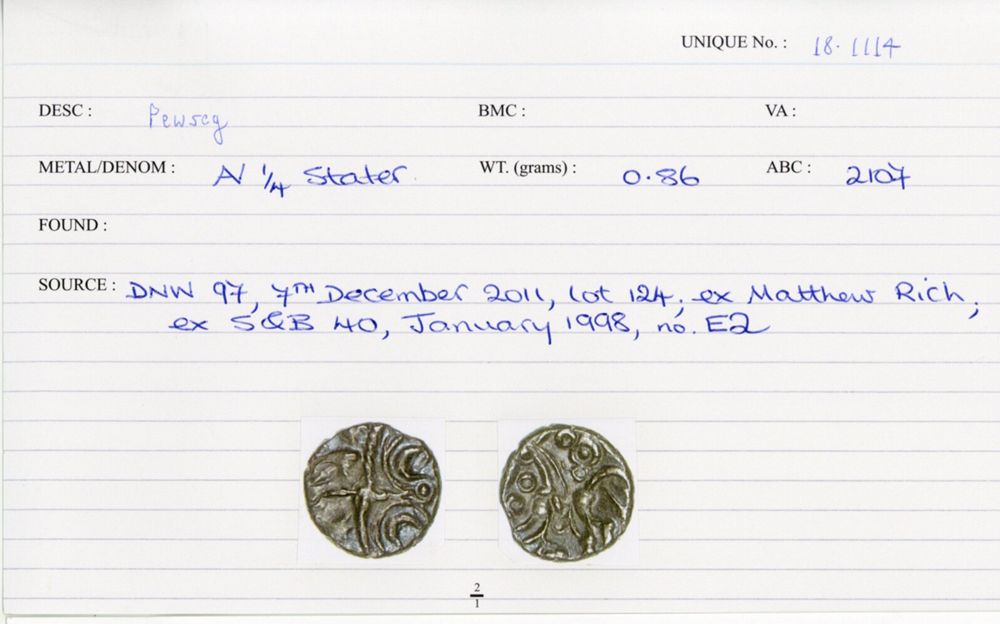 UNIQUE No. : 18.1114
DESC : Pewseg BMC : VA :
METAL/DENOM : A/ 1/4 Stater. WT. (grams) : 0.86 ABC : 2107
FOUND :
SOURCE : DNW 97, 7TH December 2011, lot 124; ex Matthew Rich;
ex S&B 40, January 1998, no. E2
2
1